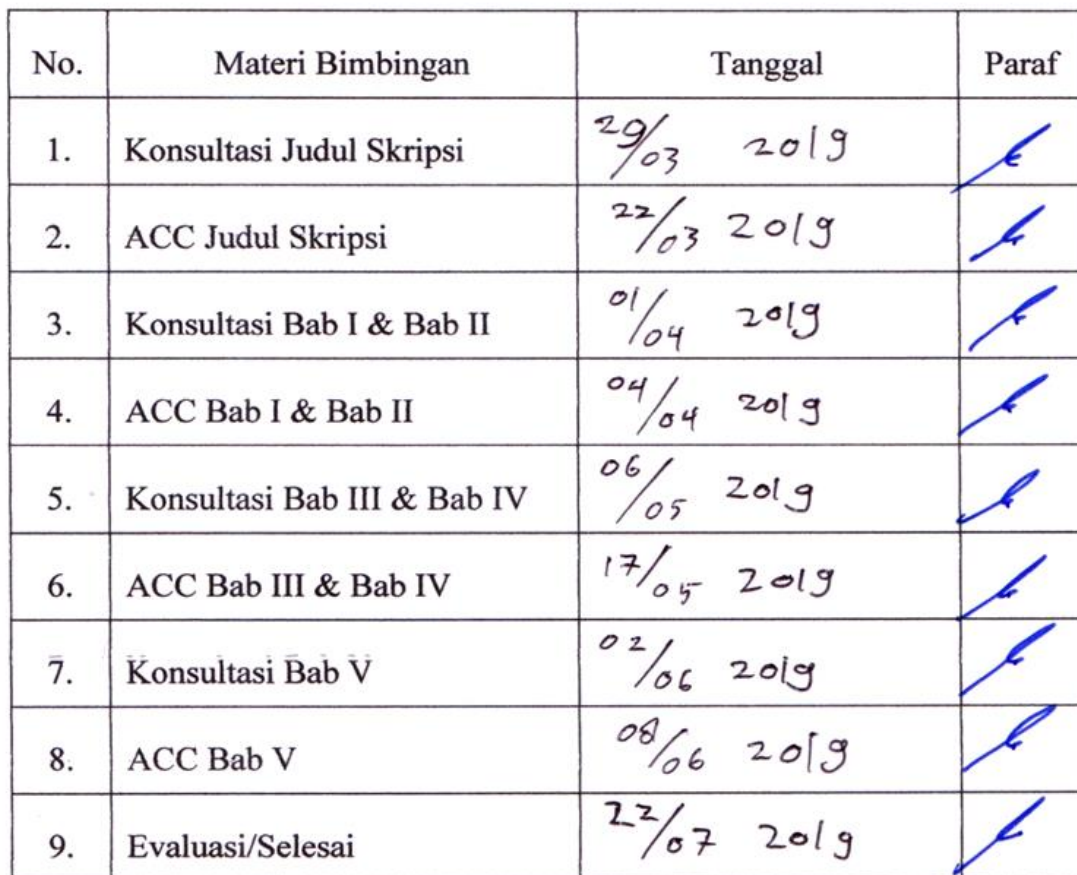 No. Materi Bimbingan Tanggal Paraf
1. Konsultasi Judul Skripsi 29/03 2019
2. ACC Judul Skripsi 22/03 2019
3. Konsultasi Bab I & Bab II 01/04 2019
4. ACC Bab I & Bab II 04/04 2019
5. Konsultasi Bab III & Bab IV 06/05 2019
6. ACC Bab III & Bab IV 17/05 2019
7. Konsultasi Bab V 02/06 2019
8. ACC Bab V 08/06 2019
9. Evaluasi/Selesai 22/07 2019